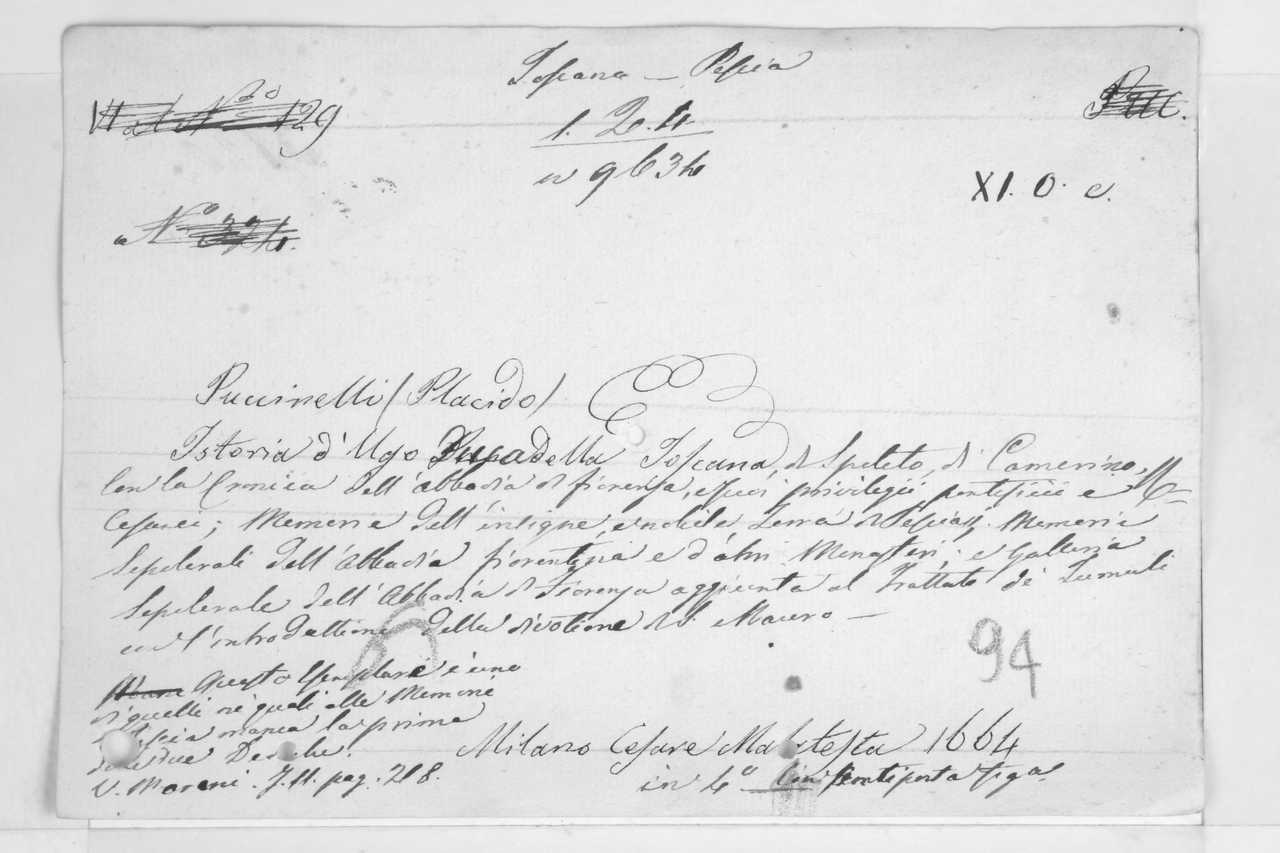 Toscana — Pescia
N.º 129
1. 2. 4.
XI. O. c.
Nº 374.
Puccinelli (Placido)
Istoria d'Ugo Duca della Toscana, di Spoleto, di Camerino,
con la Cronica dell'abbadia di fiorenza, e suoi privilegii pontificii e
Cesarei; Memorie dell'insigne, e nobile Terra di Pescia; Memorie
Sepolcrali dell'Abbadia fiorentina e d'altri Monasteri; e Galleria
Sepolcrale dell'Abbadia di Fiorenza aggiunta al Trattato de' Tumuli
con l'introduttione della divotione di S. Mauro —
94
Questo Esemplare è uno
di quelli ne' quali alle Memorie
di Pescia manca la prima
delle due Dediche.
V. Moreni. T. II. pag. 218.
Milano Cesare Malatesta 1664
in 4º Con fig.